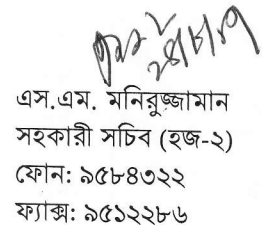 এস.এম. মনিরুজ্জামান
সহকারী সচিব (হজ-২)
ফোন: ৯৫৮৪৩২২
ফ্যাক্স: ৯৫১২২৮৬